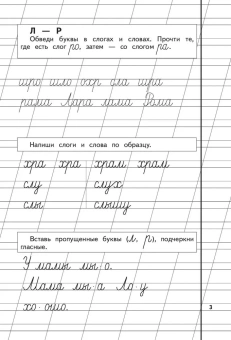 Л — Р
Обведи буквы в слогах и словах. Прочти те,
где есть слог ро, затем — со слогом ра.
шро шло охр сла шра
рама Лара лама Рама
Напиши слоги и слова по образцу.
хра хра храм храм
слу слух
слы слышу
Вставь пропущенные буквы (л, р), подчеркни
гласные.
У мамы мы о.
Мама мы а Ло у
хо ошо.
3